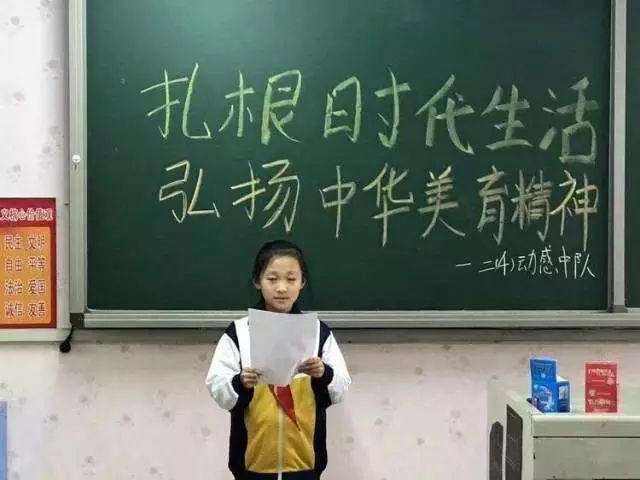 扎根时代生活
弘扬中华美育精神
一二(4)动感中队
民主 文明
自由 平等
法治 爱国
诚信 友善